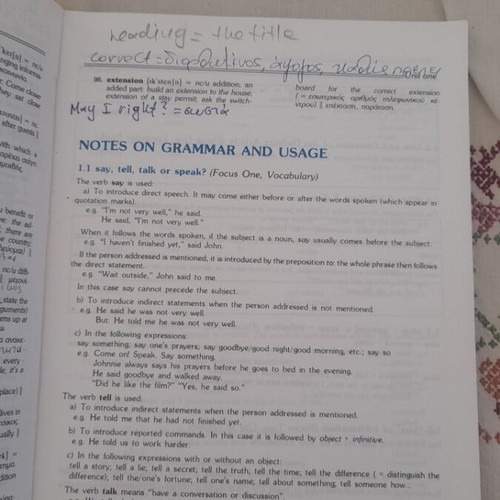 heading = the title
correct = διορθωμένος, άψογος, καθώς πρέπει
one
36. extension [ɪkˈstenʃn] = nc/u addition; an
added part: build an extension to the house;
extension of a stay permit, ask the switch-
board for the correct extension
( = εσωτερικός αριθμός τηλεφωνικού κέ-
ντρου) || επέκταση, παράταση.
May I right? = σωστά
NOTES ON GRAMMAR AND USAGE
1.1 say, tell, talk or speak? (Focus One, Vocabulary)
The verb say is used:
a) To introduce direct speech. It may come either before or after the words spoken (which appear in
quotation marks).
e.g. "I'm not very well," he said.
He said, "I'm not very well."
When it follows the words spoken, if the subject is a noun, say usually comes before the subject.
e.g. "I haven't finished yet," said John.
If the person addressed is mentioned, it is introduced by the preposition to: the whole phrase then follows
the direct statement.
e.g. "Wait outside," John said to me.
In this case say cannot precede the subject.
b) To introduce indirect statements when the person addressed is not mentioned.
e.g. He said he was not very well.
But: He told me he was not very well.
c) In the following expressions:
say something; say one's prayers; say goodbye/good night/good morning, etc.; say so
e.g. Come on! Speak. Say something.
Johnnie always says his prayers before he goes to bed in the evening.
He said goodbye and walked away.
"Did he like the film?" "Yes, he said so."
The verb tell is used:
a) To introduce indirect statements when the person addressed is mentioned.
e.g. He told me that he had not finished yet.
b) To introduce reported commands. In this case it is followed by object + infinitive.
e.g. He told us to work harder.
c) In the following expressions with or without an object:
tell a story; tell a lie; tell a secret; tell the truth; tell the time; tell the difference ( = distinguish the
difference); tell the/one's fortune; tell one's name; tell about something; tell someone how...
The verb talk means "have a conversation or discussion".